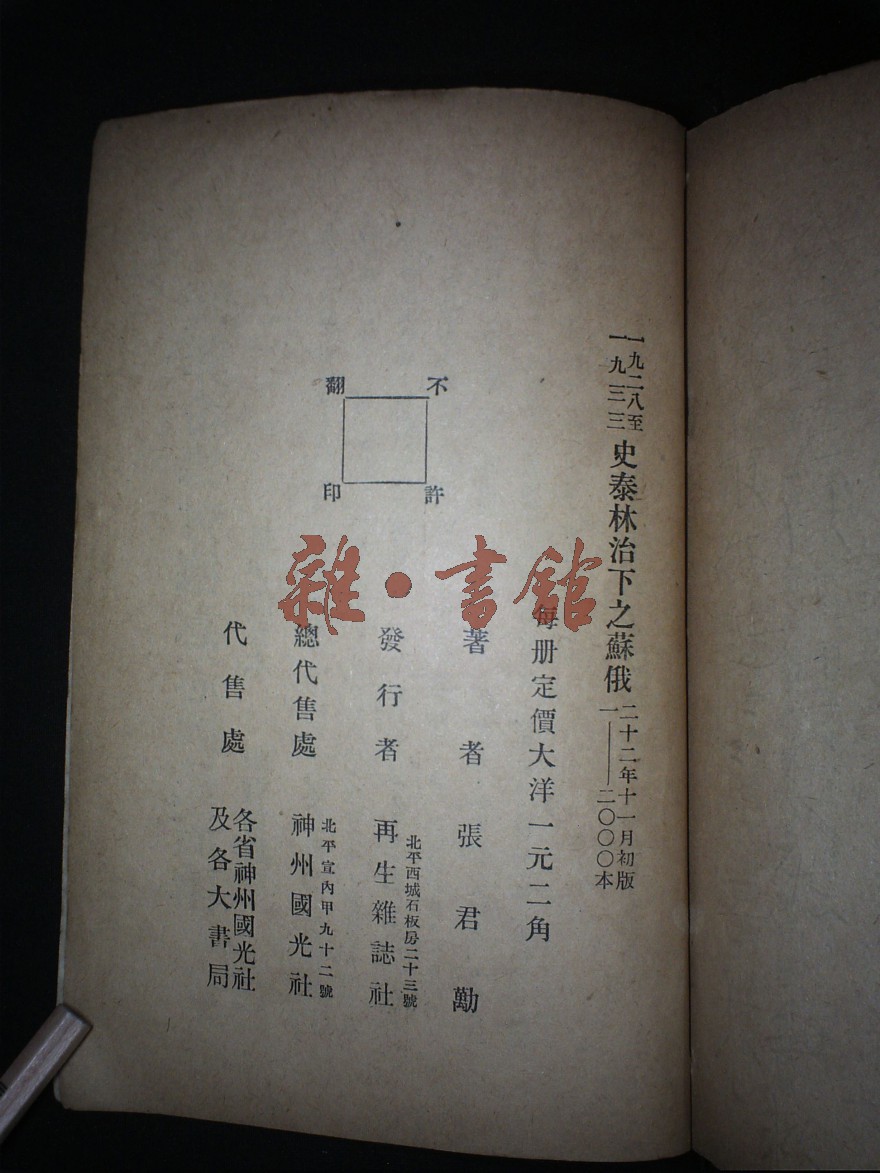 一九二八至
一九三三
史泰林治下之蘇俄
二十二年十一月初版
一——二〇〇〇本
每册定價大洋一元二角
著者 張君勱
發行者 再生雜誌社
北平西城石板房二十三號
總代售處 神州國光社
北平宣內甲九十二號
代售處 各省神州國光社
及各大書局
不許翻印
雜·書館